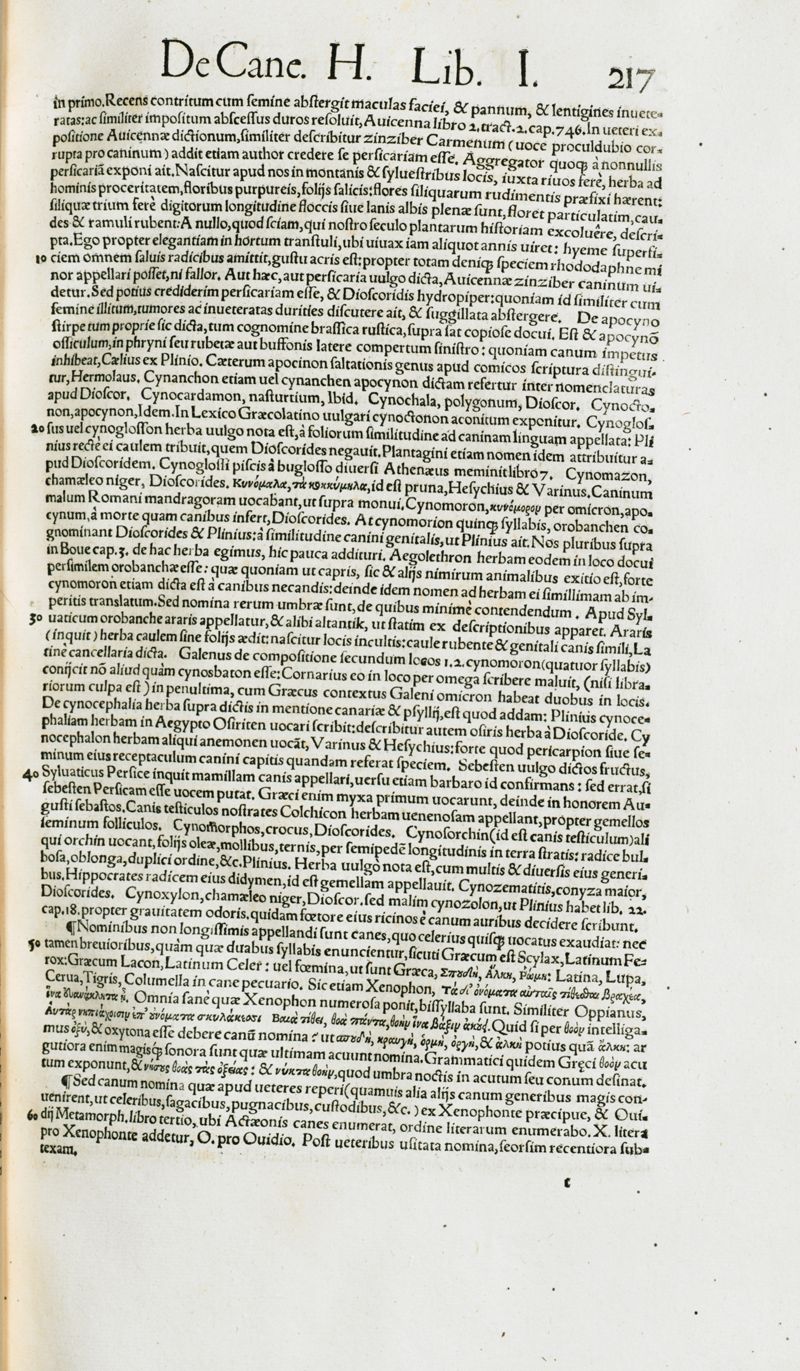 De Cane. H. Lib. I. 217
in primo. Recens contritum cum ſemine abſtergit maculas faciei, & pannum, & lentigines inuete-
ratas: ac ſimiliter impoſitum abſceſſus duros reſoluit, Auicenna libro 2. tract. 2. cap. 746. In ueteri ex-
poſitione Auicennæ dictionum, ſimiliter deſcribitur zinziber Carmenum (uoce proculdubio cor-
rupta pro caninum) addit etiam author credere ſe perſicariam eſſe. Aggregator quoq; à nonnullis
perſicariā exponi ait. Naſcitur apud nos in montanis & ſylueſtribus locis, iuxta riuos ferè, herba ad
hominis proceritatem, floribus purpureis, folijs ſalicis: flores ſiliquarum rudimentis præfixi hærent:
ſiliquæ trium ferè digitorum longitudine floccis ſiue lanis albis plenæ ſunt, floret particulatim, cau-
des & ramuli rubent: A nullo, quod ſciam, qui noſtro ſeculo plantarum hiſtoriam excoluêre, deſcri-
pta. Ego propter elegantiam in hortum tranſtuli, ubi uiuax iam aliquot annis uiret: hyeme ſuperfi-
10 ciem omnem ſaluis radicibus amittit, guſtu acris eſt: propter totam deniq; ſpeciem rhododaphne mi
nor appellari poſſet, ni fallor. Aut hæc, aut perſicaria uulgo dicta, Auicennæ zinziber caninum ui-
detur. Sed potius crediderim perſicariam eſſe, & Dioſcoridis hydropiper: quoniam id ſimiliter cum
ſemine illitum, tumores ac inueteratas durities diſcutere ait, & ſuggillata abſtergere. De apocyno
ſtirpe tum proprie ſic dicta, tum cognomine braſſica ruſtica, ſupra ſat copioſe docui. Eſt & apocynō
oſſiculum, in phryni ſeu rubetæ aut buffonis latere compertum ſiniſtro: quoniam canum impetus
inhibeat, Cælius ex Plinio. Cæterum apocinon ſaltationis genus apud comicos ſcriptura diſtingui-
tur, Hermolaus. Cynanchon etiam uel cynanchen apocynon dictam refertur inter nomenclaturas
apud Dioſcor. Cynocardamon, naſturtium, Ibid. Cynochala, polygonum, Dioſcor. Cynocto-
non, apocynon, Idem. In Lexico Græcolatino uulgari cynoctonon aconitum exponitur. Cynogloſ-
20 ſus uel cynogloſſon herba uulgo nota eſt, à foliorum ſimilitudine ad caninam linguam appellata: Pli
nius recte ei caulem tribuit, quem Dioſcorides negauit. Plantagini etiam nomen idem attribuitur a-
pud Dioſcoridem. Cynogloſſi piſcis à bugloſſo diuerſi Athenæus meminit libro 7. Cynomazon,
chamæleo niger, Dioſcorides. Κυνόμαλα, τὰ κοκκύμηλα, id eſt pruna, Heſychius & Varinus. Caninum
malum Romani mandragoram uocabant, ut ſupra monui. Cynomoron, κυνόμορον per omicron, apo-
cynum, à morte quam canibus infert, Dioſcorides. At cynomorion quinq; ſyllabis, orobanchen co-
gnominant Dioſcorides & Plinius: à ſimilitudine canini genitalis, ut Plinius ait. Nos pluribus ſupra
in Boue cap. 3. de hac herba egimus, hic pauca addituri. Aegolethron herbam eodem in loco docui
perſimilem orobanchæ eſſe: quæ quoniam ut capris, ſic & alijs nimirum animalibus exitio eſt, forte
cynomoron etiam dicta eſt à canibus necandis: deinde idem nomen ad herbam ei ſimillimam ab im-
peritis translatum. Sed nomina rerum umbræ ſunt, de quibus minimè contendendum. Apud Syl-
30 uaticum orobanche araris appellatur, & alibi altantik, ut ſtatim ex deſcriptionibus apparet. Araris
(inquit) herba caulem ſine folijs ædit: naſcitur locis incultis: caule rubente & genitali canis ſimili, La
tinè cancellaria dicta. Galenus de compoſitione ſecundum locos 1. 2. cynomoron (quatuor ſyllabis)
conijcit nō aliud quàm cynosbaton eſſe: Cornarius eo in loco per omega ſcribere maluit, (niſi libra-
riorum culpa eſt) in penultima, cum Græcus contextus Galeni omicron habeat duobus in locis.
De cynocephalia herba ſupra dictis in mentione canariæ & pſyllij, eſt quod addam: Plinius cynoce-
phaliam herbam in Aegypto Oſiriten uocari ſcribit: deſcribitur autem oſiris herba à Dioſcoride. Cy
nocephalon herbam aliqui anemonen uocāt, Varinus & Heſychius: forte quod pericarpion ſiue ſe-
minum eius receptaculum canini capitis quandam referat ſpeciem. Sebeſten uulgo dictos fructus,
40 Syluaticus Perſice inquit mamillam canis appellari, uerſu etiam barbaro id confirmans: ſed errat, ſi
ſebeſten Perſicam eſſe uocem putat. Græci enim myxa primum uocarunt, deinde in honorem Au-
guſti ſebaſtos. Canis teſticulos noſtrates Colchicon herbam uenenoſam appellant, propter gemellos
ſeminum folliculos. Cynomorphos, crocus, Dioſcorides. Cynoſorchin (id eſt canis teſticulum) ali
qui orchin uocant, folijs oleæ, mollibus, ternis, per ſemipedē longitudinis in terra ſtratis: radice bul-
boſa, oblonga, duplici ordine, &c. Plinius. Herba uulgò nota eſt, cum multis & diuerſis eius generi-
bus. Hippocrates radicem eius didymen, id eſt gemellam appellauit. Cynozematitis, conyza maior,
Dioſcorides. Cynoxylon, chamæleo niger, Dioſcor. ſed malim cynozolon, ut Plinius habet lib. 22.
cap. 18. propter grauitatem odoris. quidam fœtore eius ricinos è canum auribus decidere ſcribunt.
¶ Nominibus non longiſſimis appellandi ſunt canes, quo celerius quiſq; uocatus exaudiat: nec
50 tamen breuioribus, quàm quæ duabus ſyllabis enuncientur, ſicuti Græcum eſt Scylax, Latinum Fe-
rox: Græcum Lacon, Latinum Celer: uel fœmina, ut ſunt Græca, Σπουδή, Ἀλκή, Ῥώμη: Latina, Lupa,
Cerua, Tigris, Columella in cane pecuario. Sic etiam Xenophon, Τὰ δ' ὀνόματα αὐταῖς τίθεσθαι βραχέα,
ἵνα εὐανάκλητα ᾖ. Omnia ſanè quæ Xenophon numeroſa ponit, biſſyllaba ſunt. Similiter Oppianus,
Αὐτὰρ νηπιάχοισιν ἐπ' ὀνόματα σκυλάκεσσι Βαιὰ τίθει, θοὰ πάντα, θοὴν ἵνα βάξιν ἀκούῃ. Quid ſi per θοὸν intelliga-
mus ὀξύ, & oxytona eſſe debere canū nomina? ut σπουδή, κραυγή, ὁρμή, ὀργή, & ἀλκή potius quā ἄλκη: ar
gutiora enim magisq; ſonora ſunt quæ ultimam acuunt nomina. Grammatici quidem Gręci θοὸν acu
tum exponunt, & νήσους θοὰς τὰς ὀξείας: & νύκτα θοὴν, quod umbra noctis in acutum ſeu conum deſinat.
¶ Sed canum nomina quæ apud ueteres reperi (quamuis alia alijs canum generibus magis con-
uenirent, ut celeribus, ſagacibus, pugnacibus, cuſtodibus, &c.) ex Xenophonte præcipue, & Oui-
60 dij Metamorph. libro tertio, ubi Actæonis canes enumerat, ordine literarum enumerabo. X. litera
pro Xenophonte addetur, O. pro Ouidio. Poſt ueteribus uſitata nomina, ſeorſim recentiora ſub-
texam.